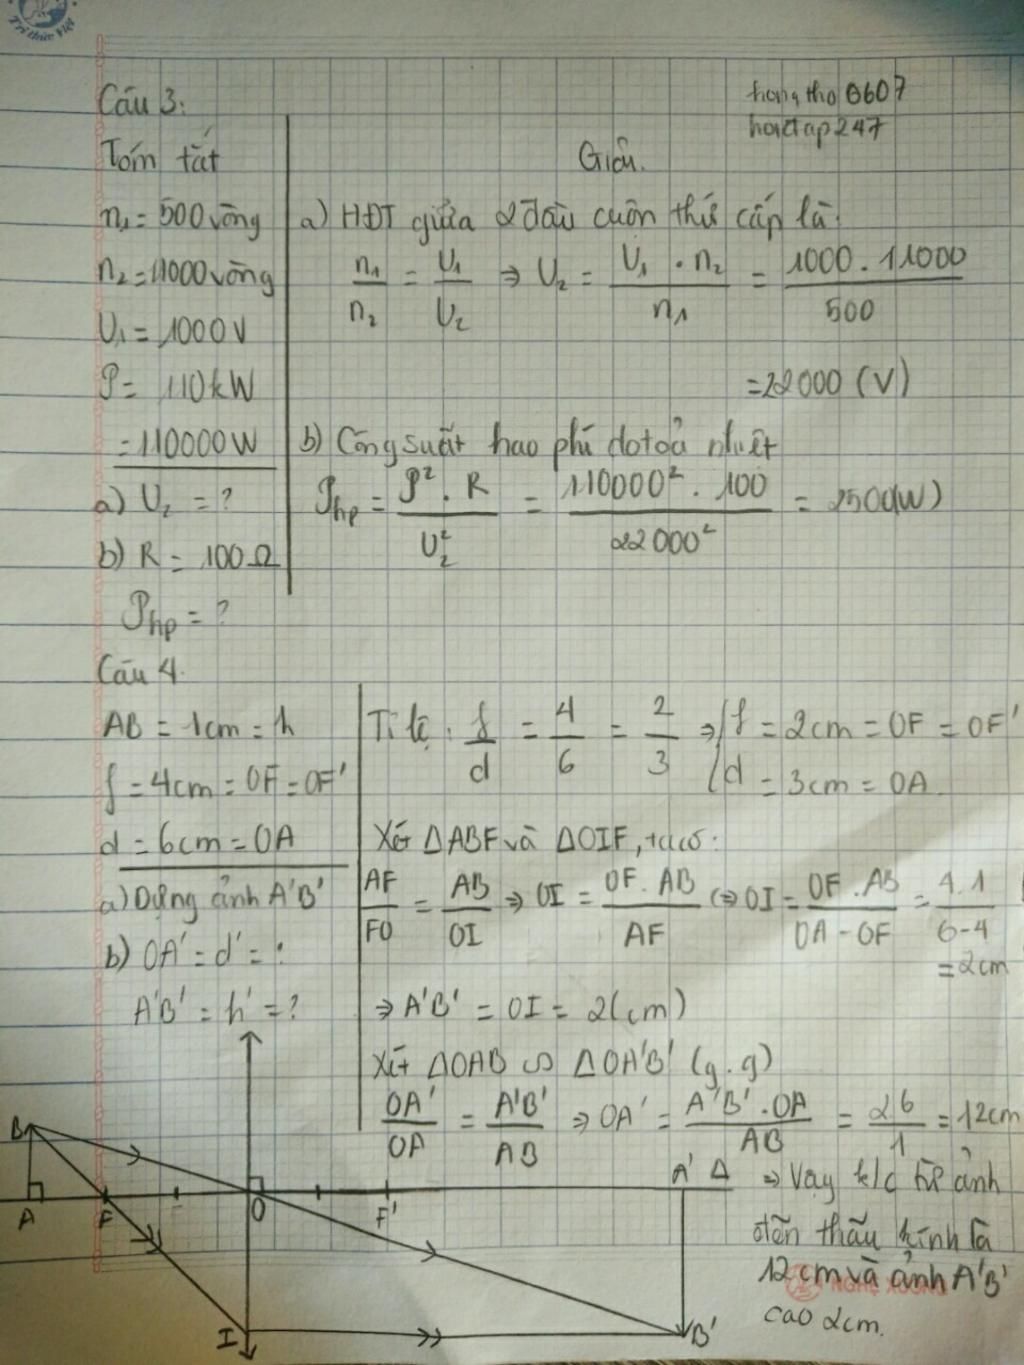 Trí thức Việt
hongtho0607
hoidap247
Câu 3:
Tóm tắt
n₁ = 500 vòng
n₂ = 11000 vòng
U₁ = 1000 V
P = 110 kW
= 110000 W
a) U₂ = ?
b) R = 100 Ω
Php = ?
Giải.
a) HĐT giữa 2 đầu cuộn thứ cấp là:
n₁/n₂ = U₁/U₂ ⇒ U₂ = U₁ . n₂ / n₁ = 1000 . 11000 / 500
= 22000 (V)
b) Công suất hao phí do toả nhiệt
Php = P² . R / U₂² = 110000² . 100 / 22000² = 2500(W)
Câu 4.
AB = 1cm = h
f = 4cm = OF = OF'
d = 6cm = OA
a) Dựng ảnh A'B'
b) OA' = d' = ?
A'B' = h' = ?
Tỉ lệ : f/d = 4/6 = 2/3 ⇒ f = 2cm = OF = OF'
d = 3cm = OA.
Xét ΔABF và ΔOIF, ta có:
AF/FO = AB/OI ⇒ OI = OF . AB / AF ⇔ OI = OF . AB / OA - OF = 4.1 / 6-4
= 2cm
⇒ A'B' = OI = 2(cm)
Xét ΔOAB ∽ ΔOA'B' (g.g)
OA'/OA = A'B'/AB ⇒ OA' = A'B' . OA / AB = 2.6 / 1 = 12cm
⇒ Vậy k/c từ ảnh
đến thấu kính là
12 cm và ảnh A'B'
cao 2cm.
B
A
F
O
F'
A'
Δ
I
B'